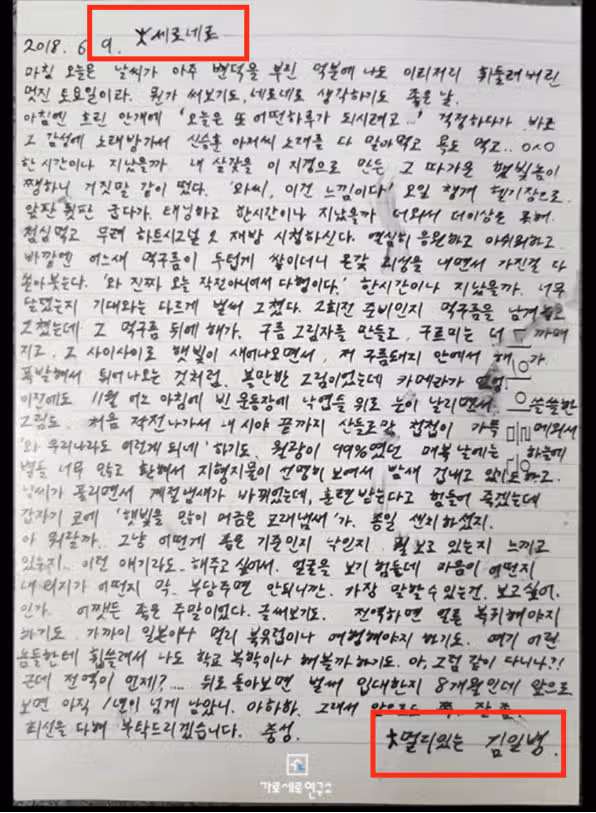 2018. 6. 9. *세로네로
마침 오늘은 날씨가 아주 변덕을 부린 덕분에 나도 이리저리 휘둘려버린
멋진 토요일이라. 뭔가 써보기도, 세로네로 생각하기도 좋은 날.
아침엔 흐린 안개에 '오늘은 또 어떤하루가 되시려고...' 걱정하다가 바로
그 감성에 노래방가서 신승훈 아저씨 노래를 다 말아먹고 욕도 먹고.. 0^0
한시간이나 지났을까. 내 살갗을 이 지경으로 만든 그 따가운 햇빛놈이
쨍하니 거짓말 같이 떴다. '와씨, 이건 느낌이다!' 오일 챙겨 헬기장으로.
앞판 뒷판 굽다가. 태닝하고 한시간이나 지났을까 더워서 더이상은 못해.
점심먹고 무려 하트시그널 2 재방 시청하신다. 열심히 응원하고 아쉬워하고.
바깥엔 어느새 먹구름이 두텁게 쌓이더니 온갖 괴성을 내면서 가진걸 다
쏟아붓는다. '와 진짜 오늘 작전아니어서 다행이다.' 한시간이나 지났을까. 너무
달랬는지 기대와는 다르게 벌써 그쳤다. 2회전 준비인지 먹구름을 남겨놓고
그쳤는데 그 먹구름 뒤에 해가. 구름 그림자를 만들고, 구르미는 더 까매
지고. 그 사이사이로 햇빛이 새어나오면서, 저 구름돼지 안에서 해가
폭발해서 튀어나오는 것처럼. 볼만한 그림이었는데 카메라가 없음.
이전에도 11월 어느 아침에 빈 운동장에 낙엽들 위로 눈이 날리면서 쓸쓸한
그림도. 처음 작전나가서 내 시야 끝까지 산등로만 첩첩이 가득 메워서
'와 우리나라도 이렇게 되네' 하기도. 월광이 99%였던 매복 날에는 하늘에
별들 너무 많고 환해서 지형지물이 선명히 보여서 밤새 겁내고 있기도하고.
날씨가 풀리면서 계절냄새가 바뀌었는데, 훈련 받는다고 힘들어 죽겠는데
갑자기 코에 '햇빛을 많이 머금은 모래냄새'가. 종일 센치하셨지.
아 뭐랄까. 그냥 어떻게 좋은 기준인지 낙인지 뭘 보고 있는지 느끼고
있는지.. 이런 얘기라도 해주고 싶어서. 얼굴을 보기 힘들데 마음이 어떤지
내 의지가 어떤지 막 부담주면 안되니깐. 가장 말할수 있는건. 보고싶어.
인가. 어쨌든 좋은 주말이었다. 글써보기도. 전역하면 얼른 복귀해야지
하기도. 가까이 일본이나 멀리 북유럽이나 여행해야지 하기도. 여기 어린
놈들한테 휩쓸려서 나도 학교 복학이나 해볼까하기도. 아, 그럼 같이 다니나?!
근데 전역이 언제?.... 뒤로 돌아보면 벌써 입대한지 8개월인데 앞으로
보면 아직 1년이 넘게 남았니. 아하하. 그래서 앞으로도 쭉 잘 좀.
최선을 다해 부탁드리겠습니다. 충성.
*멀리있는 김일병.
가로세로연구소